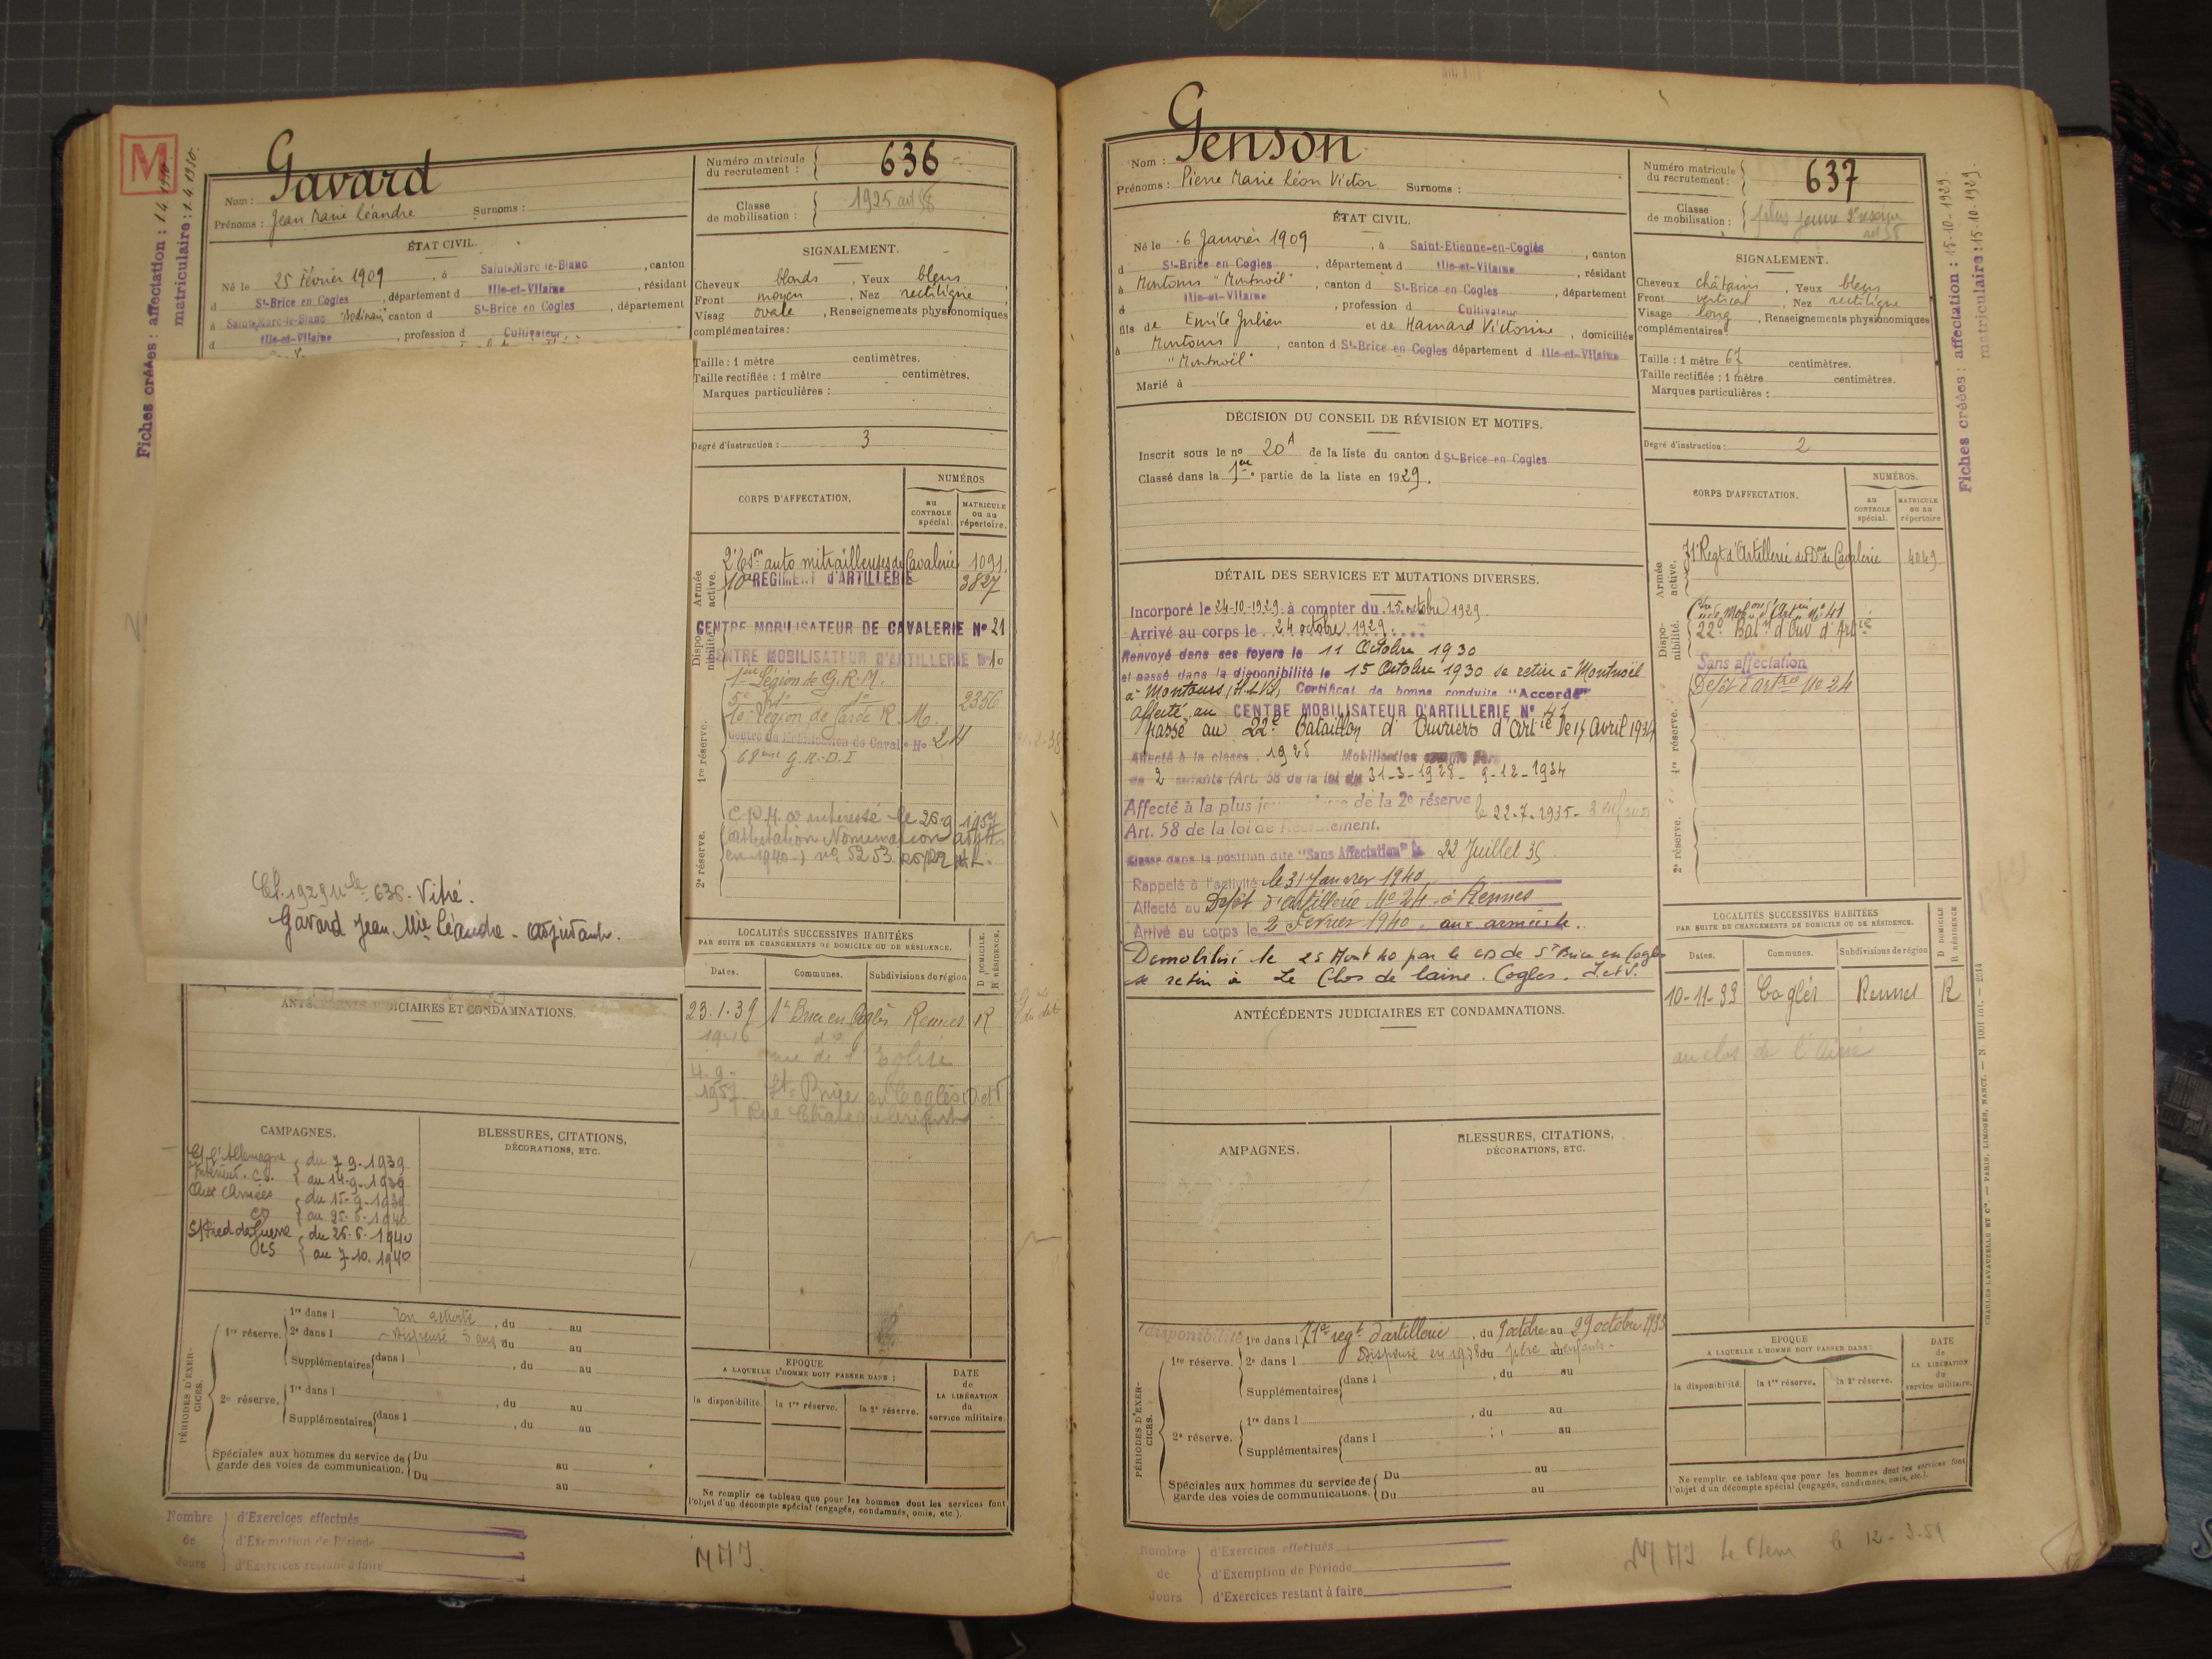 M
Fiches créées : affectation : 1.4.1930
matriculaire : 1.4.1930.
Nom : Gavard
Prénoms : Jean Marie Léandre Surnoms :
Numéro matricule du recrutement : 636
Classe de mobilisation : 1925
ÉTAT CIVIL.
Né le 25 Février 1909, à Saint-Marc-le-Blanc, canton
d St-Brice en Cogles, département d Ille-et-Vilaine, résidant
à Saint-Marc-le-Blanc canton d St-Brice en Cogles, département
d Ille-et-Vilaine, profession d Cultivateur
SIGNALEMENT.
Cheveux blonds, Yeux bleus,
Front moyen, Nez rectiligne,
Visag ovale, Renseignements physionomiques
complémentaires :
Taille : 1 mètre centimètres.
Taille rectifiée : 1 mètre centimètres.
Marques particulières :
Degré d'instruction : 3
CORPS D'AFFECTATION.
NUMÉROS
au CONTROLE spécial.
MATRICULE ou au répertoire.
Armée active.
2e Eson auto mitrailleuses de Cavalerie 1091.
10e REGIMENT d'ARTILLERIE 3827
Disponibilité.
CENTRE MOBILISATEUR DE CAVALERIE No 21
CENTRE MOBILISATEUR D'ARTILLERIE No 10
1re réserve.
1ère Légion de G.R.M.
5e do do 2356
10e Légion de Garde R. M.
Centre de Mobilisation de Caval. No 24
68ème G.R.D.I
2e réserve.
intéressé le 26-9-1957
en 1940
Cl. 1929 Mle 636. Vitré.
Gavard Jean Mie Léandre - adjudant.
LOCALITÉS SUCCESSIVES HABITÉES
PAR SUITE DE CHANGEMENTS DE DOMICILE OU DE RÉSIDENCE.
D DOMICILE. R RÉSIDENCE.
Dates. Communes. Subdivisions de région
23.1.39 St Brice en Coglès Rennes R
rue de l'Eglise
4-9-1957 St-Brice en Coglès
ANTÉCÉDENTS JUDICIAIRES ET CONDAMNATIONS.
CAMPAGNES.
Ct l'Allemagne du 7-9-1939
Intérieur. CS. au 14-9-1939
Aux Armées du 15-9-1939
CD au 25-6-1940
S/Pied de Guerre du 26.6.1940
CS au 7.10.1940
BLESSURES, CITATIONS,
DÉCORATIONS, ETC.
PÉRIODES D'EXERCICES.
1re réserve.
1re dans l En activité, du au
2e dans l Dispensé 5 ans du au
Supplémentaires dans l , du au
2e réserve.
1re dans l , du au
Supplémentaires dans l , du au
Spéciales aux hommes du service de garde des voies de communication. Du au
Du au
EPOQUE
A LAQUELLE L'HOMME DOIT PASSER DANS :
la disponibilité. la 1re réserve. la 2e réserve.
DATE de LA LIBÉRATION du service militaire.
Ne remplir ce tableau que pour les hommes dont les services font
l'objet d'un décompte spécial (engagés, condamnés, omis, etc.).
Nombre de Jours
d'Exercices effectués
d'Exemption de Période
d'Exercices restant à faire
Nom : Genson
Prénoms : Pierre Marie Léon Victor Surnoms :
Numéro matricule du recrutement : 637
Classe de mobilisation :
Fiches créées : affectation : 15-10-1929.
matriculaire : 15-10-1929.
ÉTAT CIVIL.
Né le 6 Janvier 1909, à Saint-Etienne-en-Coglès, canton
d St-Brice en Cogles, département d Ille-et-Vilaine, résidant
à Montours "Montnoël", canton d St-Brice en Cogles, département
d Ille-et-Vilaine, profession d Cultivateur
fils de Emile Julien et de Hamard Victorine, domiciliés
à Montours, canton d St-Brice en Cogles département d Ille-et-Vilaine
"Montnoël"
Marié à
SIGNALEMENT.
Cheveux châtains, Yeux bleus
Front vertical, Nez rectiligne
Visage long, Renseignements physionomiques
complémentaires :
Taille : 1 mètre 67 centimètres.
Taille rectifiée : 1 mètre centimètres.
Marques particulières :
Degré d'instruction : 2
DÉCISION DU CONSEIL DE RÉVISION ET MOTIFS.
Inscrit sous le no 20A de la liste du canton d St-Brice en Cogles
Classé dans la 1ère partie de la liste en 1929.
DÉTAIL DES SERVICES ET MUTATIONS DIVERSES.
Incorporé le 24-10-1929 à compter du 15 octobre 1929.
Arrivé au corps le 24 octobre 1929.
Renvoyé dans ses foyers le 11 Octobre 1930
et passé dans la disponibilité le 15 Octobre 1930 se retire à Montnoël
à Montours (I&V), Certificat de bonne conduite "Accordé"
Affecté au CENTRE MOBILISATEUR D'ARTILLERIE No 41
Passé au 22e Bataillon d'Ouvriers d'Artie le 15 Avril 1934
Affecté à la classe 1925 Mobilisation comme père
de 2 enfants (Art. 58 de la loi du 31-3-1928 - 9-12-1934
Affecté à la plus jeune classe de la 2e réserve le 22-7-1935 - 3 enfants
Art. 58 de la loi de Recrutement.
Classé dans la position dite "Sans Affectation" le 22 Juillet 35
Rappelé à l'activité le 31 Janvier 1940
Affecté au Dépôt d'artillerie No 24 à Rennes
Arrivé au corps le 2 Février 1940, aux armées.
Démobilisé le 25 Aout 40 par le CD de St Brice en Cogles
se retire à Le Clos de laine. Cogles. I et V.
CORPS D'AFFECTATION.
NUMÉROS.
au CONTROLE spécial.
MATRICULE ou au répertoire
Armée active.
71e Regt d'Artillerie des Don de Cavalerie 4049
Disponibilité.
Ctre de Mobon d'Artie No 41
22e Baton d'Ouv d'Artie
Sans affectation
1re réserve.
Dépôt d'artie No 24
2e réserve.
LOCALITÉS SUCCESSIVES HABITÉES
PAR SUITE DE CHANGEMENTS DE DOMICILE OU DE RÉSIDENCE.
D DOMICILE R RÉSIDENCE
Dates. Communes. Subdivisions de région
10-11-33 Coglès Rennes R
au clos de l'Aine
ANTÉCÉDENTS JUDICIAIRES ET CONDAMNATIONS.
AMPAGNES.
BLESSURES, CITATIONS,
DÉCORATIONS, ETC.
PÉRIODES D'EXERCICES.
disponibilité 1re dans l 71e regt d'artillerie, du 9 octobre au 29 octobre 1933
1re réserve. 2e dans l Dispensé en 1938 du père au enfants
Supplémentaires dans l , du au
2e réserve.
1re dans l , du au
Supplémentaires dans l au
Spéciales aux hommes du service de garde des voies de communications. Du au
Du au
EPOQUE
A LAQUELLE L'HOMME DOIT PASSER DANS :
la disponibilité. la 1re réserve. la 2e réserve.
DATE de LA LIBÉRATION du service militaire.
Ne remplir ce tableau que pour les hommes dont les services font
l'objet d'un décompte spécial (engagés, condamnés, omis, etc.).
CHARLES-LAVAUZELLE ET Cie. — PARIS, LIMOGES, NANCY.
Nombre de Jours
d'Exercices effectués
d'Exemption de Période
d'Exercices restant à faire
le 12-3-59